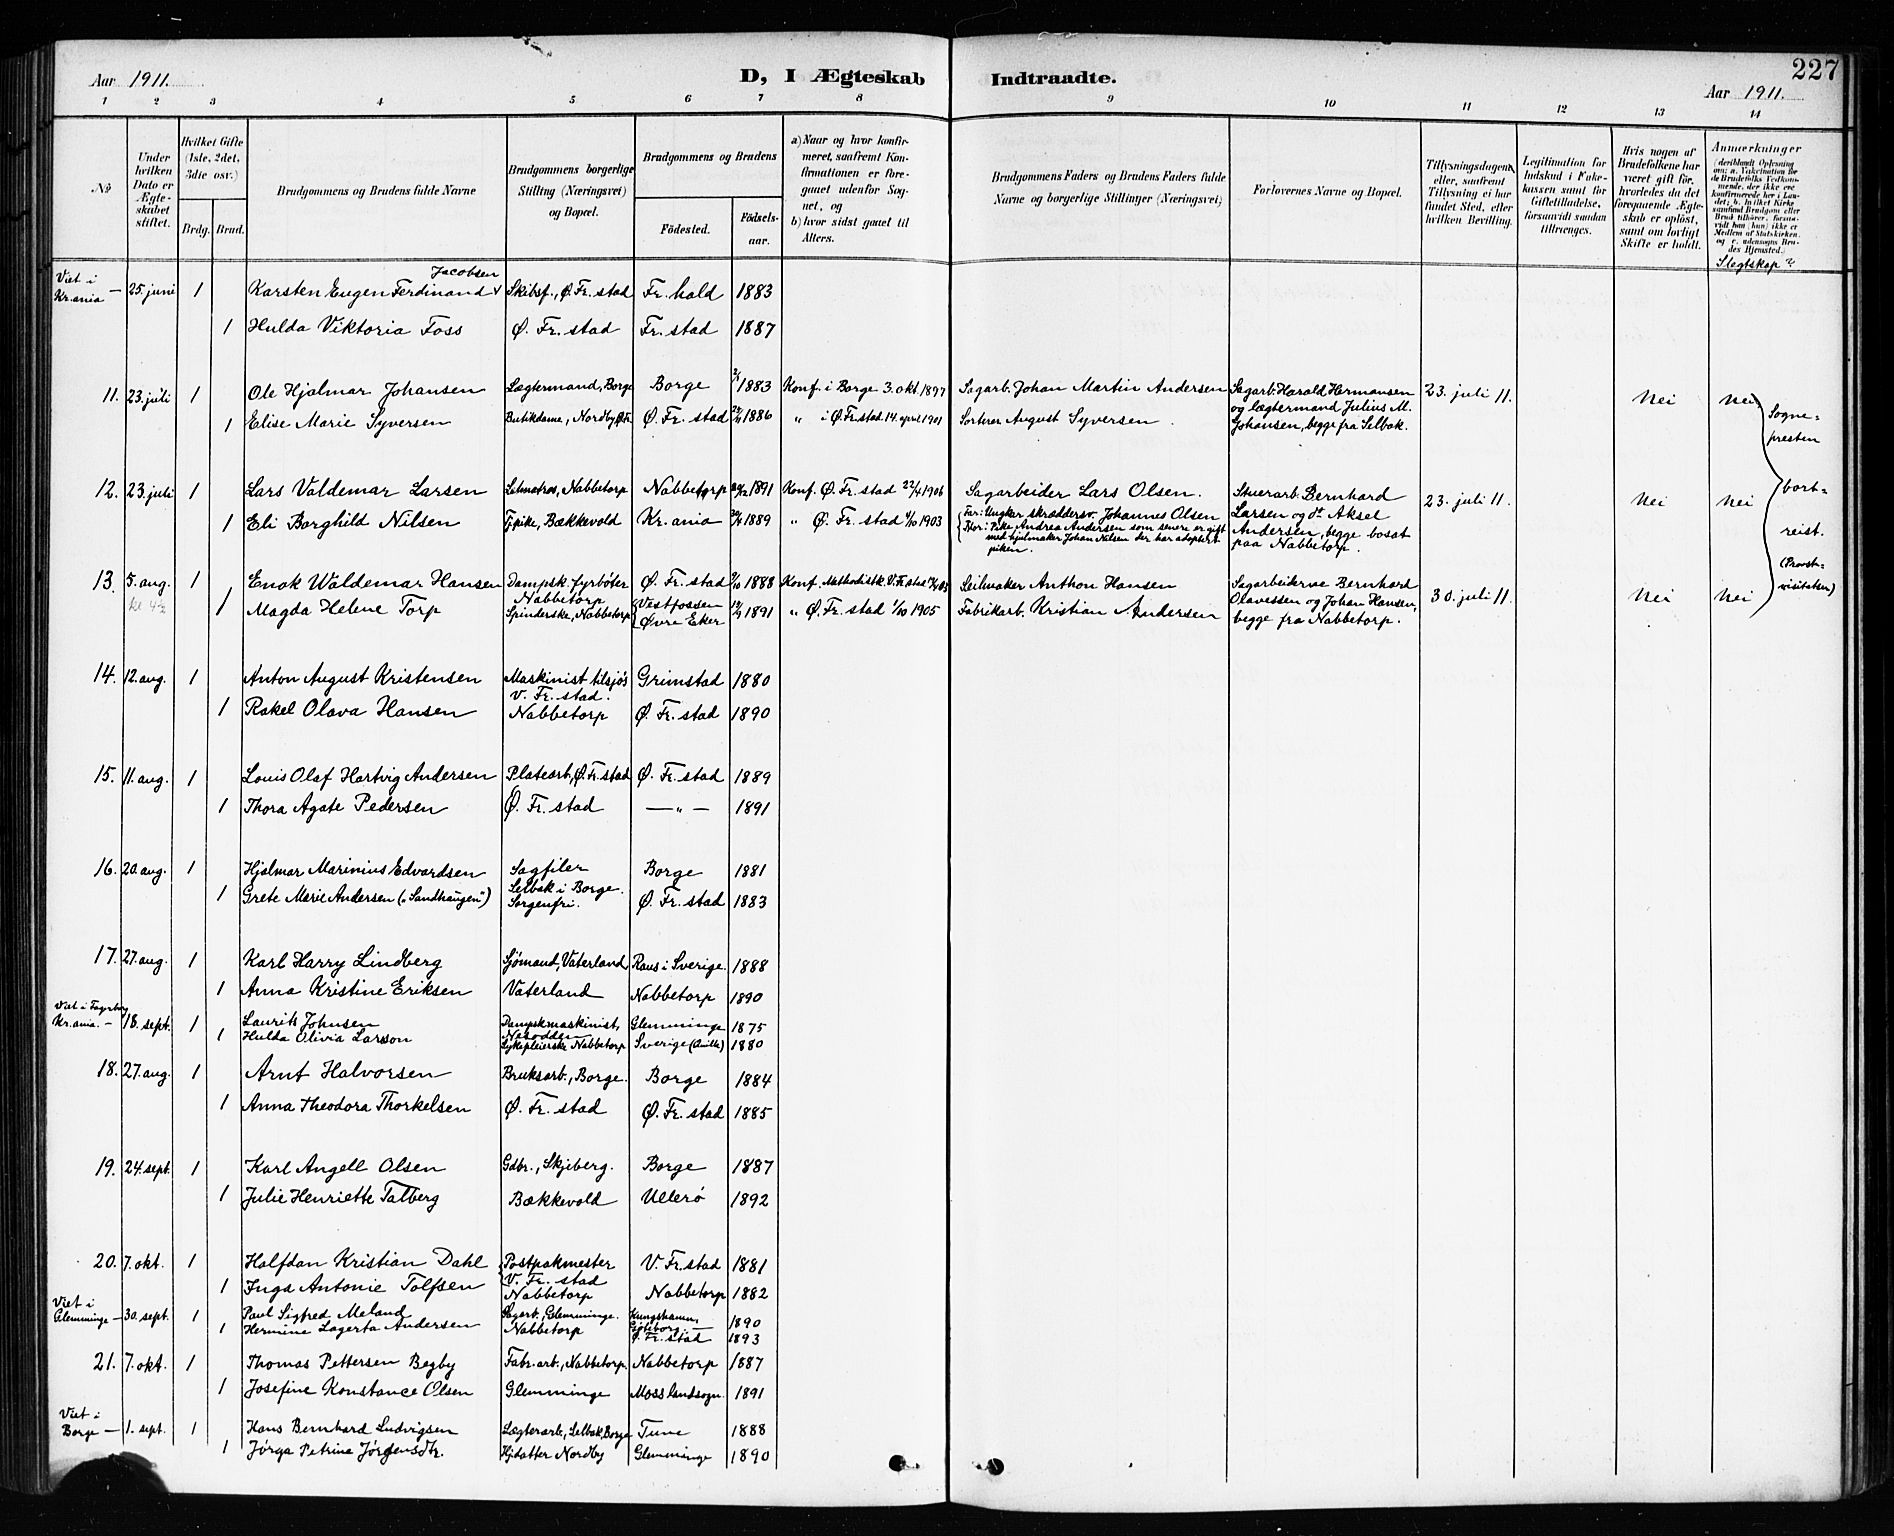 227
Aar 1911.
D, I Ægteskab Indtraadte.
Aar 1911.
1 2 3 4 5 6 7 8 9 10 11 12 13 14
No
Under hvilken Dato er Ægteskabet stiftet.
Hvilket Gifte (1ste, 2det, 3die osv.)
Brdg. Brud.
Brudgommens og Brudens fulde Navne
Brudgommens borgerlige Stilling (Næringsvei) og Bopæl.
Brudgommens og Brudens
Födested. Födsels-aar.
a) Naar og hvor konfirmeret, saafremt Konfirmationen er foregaaet udenfor Sognet, og
b) hvor sidst gaaet til Alters.
Brudgommens Faders og Brudens Faders fulde Navne og borgerlige Stillinger (Næringsvei)
Forlovernes Navne og Bopæl.
Tillysningsdagen, eller, saafremt Tillysning ei har fundet Sted, efter hvilken Bevilling.
Legitimation for Indskud i Enkekassen samt for Giftetilladelse, forsaavidt saadan tiltrænges.
Hvis nogen af Brudefolkene har været gift før, hvorledes da det foregaaende Ægteskab er oplöst, samt om lovligt Skifte er holdt.
Anmærkninger
Slegtskap?
Viet i Kr.ania — 25. juni 1 Karsten Eugen Ferdinand Jacobsen Skibsf., Ø. Fr. stad Fr. hald 1883
1 Hulda Viktoria Foss Ø. Fr. stad Fr. stad 1887
11. 23. juli 1 Ole Hjalmar Johansen Lægtermand, Borge Borge 1883 Konf. i Borge 3. okt 1897 Sagarb. Johan Martin Andersen Sagarb. Harald Hermansen 23. juli 11. Nei Nei
1 Elise Marie Syversen Butikdame, Nordby Ø.Fr. Ø. Fr. stad 1886 " i Ø. Fr. stad 14. april 1901 Sorterer August Syversen. og lægtermand Julius M. Johansen, begge fra Selbak.
Sogne-
presten
bort-
reist.
(Provst-
visitatsen)
12. 23. juli 1 Lars Valdemar Larsen Letmatros, Nabbetorp Nabbetorp 1891 Konf. Ø. Fr. stad 22/4 1906 Sagarbeider Lars Olsen. Stuerarb. Bernhard 23. juli 11. Nei Nei
1 Eli Borghild Nilsen Tj.pike, Bækkevold Kr. ania 1889 " Ø. Fr. stad 4/10 1903 Far: Ungkar skræddersv. Johannes Olsen Larsen og dt. Aksel
Mor: Pike Andrea Andersen som senere er gift Andersen, begge bosat
med hjulmaker Johan Nilsen der har adoptert paa Nabbetorp.
piken.
13. 5. aug. 1 Enok Waldemar Hansen Dampsk. fyrbøter Ø. Fr. stad 1888 Konf. Methodistk. V. Fr. stad Seilmaker Anthon Hansen Sagarbeiderne Bernhard 30. juli 11. Nei Nei
kl 4½ Nabbetorp Olavessen og Johan Hansen,
1 Magda Helene Torp Spinderske, Nabbetorp Vestfossen Øvre Eker 1891 " Ø. Fr. stad 1/10 1905 Fabrikarb. Kristian Andersen begge fra Nabbetorp.
14. 12. aug. 1 Anton August Kristensen Maskinist tilsjøs V. Fr. stad. Grimstad 1880
1 Rakel Olava Hansen Nabbetorp Ø. Fr. stad 1890
15. 11. aug. 1 Louis Olaf Hartvig Andersen Platearb., Ø. Fr. stad Ø. Fr. stad 1889
1 Thora Agate Pedersen Ø. Fr. stad — " — 1891
16. 20. aug. 1 Hjalmar Marinius Edvardsen Sagfiler Selbak i Borge. Borge 1881
1 Grete Marie Andersen („Sandhaugen") Sorgenfri. Ø. Fr. stad 1883
17. 27. aug. 1 Karl Harry Lindberg Sjømand, Vaterland Raus i Sverige. 1888
1 Anna Kristine Eriksen Vaterland Nabbetorp 1890
Viet i Fagerborg Kr.ania. — 18. sept. 1 Laurits Johnsen Dampskmaskinist, Nesodden Glemminge 1875
1 Hulda Olivia Larsson Sykepleierske Nabbetorp Sverige (Quille) 1880
18. 27. aug. 1 Arnt Halvorsen Bruksarb., Borge. Borge 1884
1 Anna Theodora Thorkelsen Ø. Fr. stad Ø. Fr. stad 1885
19. 24. sept. 1 Karl Angell Olsen Gdbr., Skjeberg. Borge 1887
1 Julie Henriette Talberg Bækkevold Ullerø 1892
20. 7. okt. 1 Halfdan Kristian Dahl Postpakmester V. Fr. stad V. Fr. stad 1881
1 Inga Antonie Tolfsen Nabbetorp Nabbetorp 1882
Viet i Glemminge — 30. sept. 1 Paul Sigfred Meland Sagarb., Glemminge. Kungshamn, Göteborg 1890
1 Hermine Lagerta Andersen Nabbetorp Ø. Fr. stad 1893
21. 7. okt. 1 Thomas Pettersen Begby Fabr. arb., Nabbetorp. Nabbetorp 1887
1 Josefine Konstance Olsen Glemminge Moss landsogn. 1891
Viet i Borge — 1. sept. 1 Hans Bernhard Ludvigsen Lægterarb., Selbak, Borge Tune 1888
1 Jørga Petrine Jørgensdtr. Hj.datter Nordby Glemminge 1890